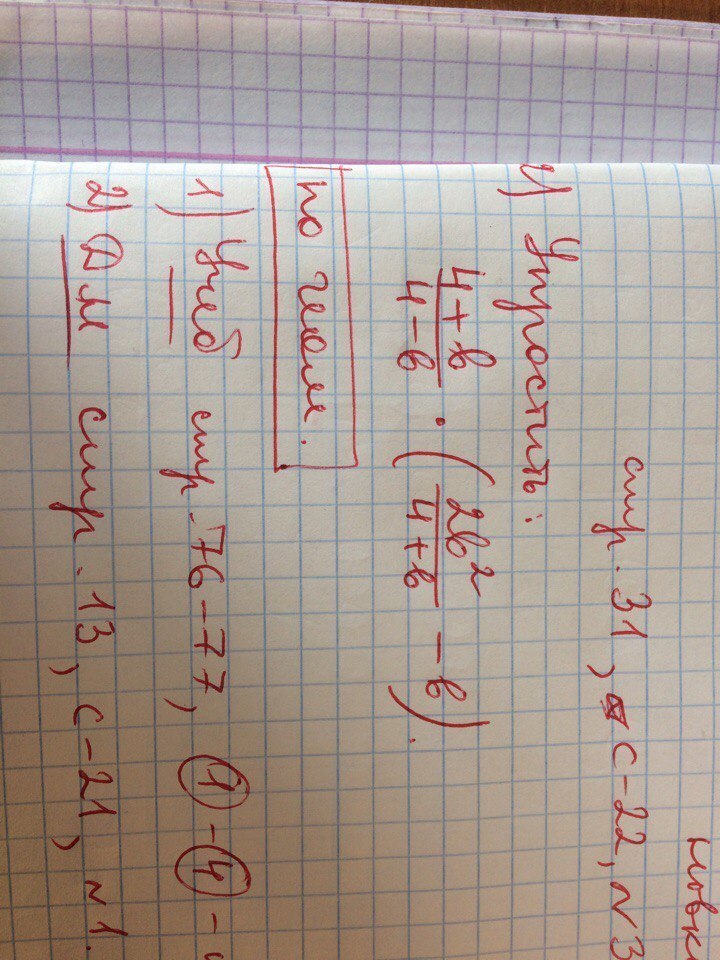 стр. 31, С-22, №3
4) Упростить:
\frac{4+b}{4-b} · (\frac{2b^2}{4+b} - b).
по геом.
1) Учеб стр. 76-77, 1 - 4 -
2) ДМ стр. 13, С-21, №1.